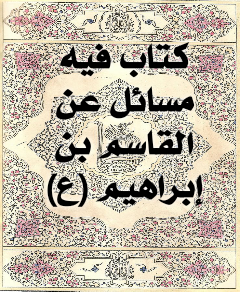 كتاب فيه
مسائل عن
القاسم بن
إبراهيم (ع)